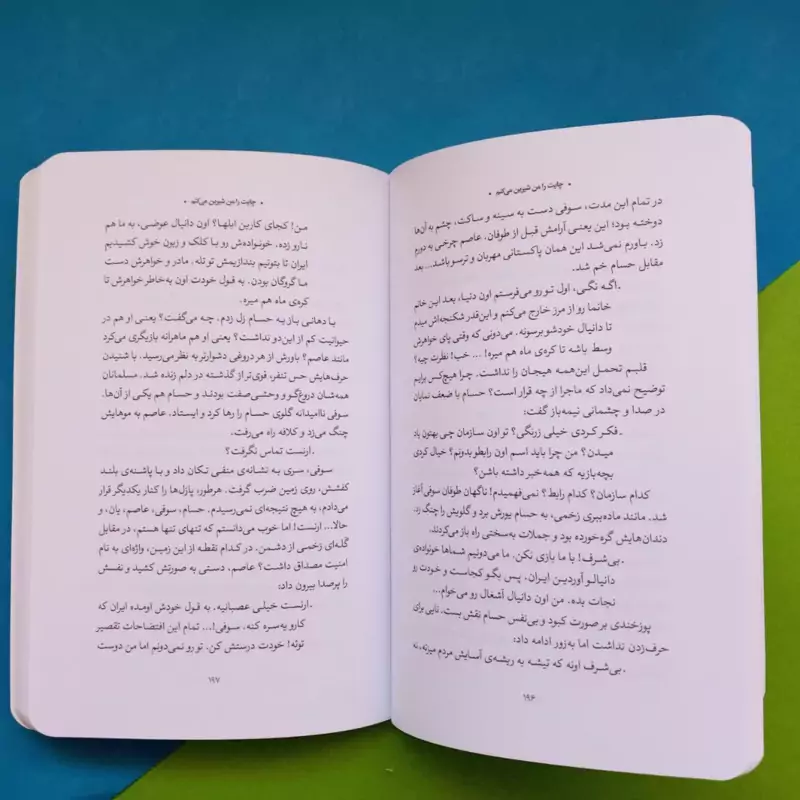 • چایت را من شیرین می‌کنم •
در تمام این مدت، سوفی دست به سینه و ساکت، چشم به آن‌ها
دوخته بود؛ این یعنی آرامش قبل از طوفان. عاصم چرخی به دورم
زد. باورم نمی‌شد این همان پاکستانی مهربان و ترسو باشد... بعد
مقابل حسام خم شد.
ـ اگـه نگـی، اول تـو رو می‌فرستم اون دنیـا، بعـد ایـن خانم
خانما رو از مرز خارج می‌کنم و این‌قدر شکنجه‌اش میدم
تا دانیال خودشو برسونه. می‌دونی که وقتی پای خواهرش
وسط باشه تا کره‌ی ماه هم میره! ... خب! نظرت چیه؟
قلبـم تحمـل این‌همـه هیجـان را نداشـت. چـرا هیچ‌کس برایم
توضیح نمی‌داد که ماجرا از چه قرار است؟ حسام با ضعف نمایان
در صدا و چشمانی نیمه‌باز گفت:
ـ فکـر کـردی خیلی زرنگی؟ تو اون سازمان چی بهتون یاد
میـدن؟ من چرا باید اسم اون رابطو بدونم؟ خیال کردی
بچه‌بازیه که همه خبر داشته باشن؟
کدام سازمان؟ کدام رابط؟ نمی‌فهمیدم! ناگهان طوفان سوفی آغاز
شد. مانند ماده‌ببری زخمی، به حسام یورش برد و گلویش را چنگ زد.
دندان‌هایش گره خورده بود و جملات به‌سختی راه باز می‌کردند.
ـ بی‌شرف! با ما بازی نکن. ما می‌دونیم شماها خونواده‌ی
دانیالـو آوردیـن ایـران. پـس بگـو کجاسـت و خـودت رو
نجات بده. من اون دانیال آشغال رو می‌خوام...
پوزخندی بر صورت کبود و بی‌نفس حسام نقش بست. نایی برای
حرف‌زدن نداشت اما به‌زور ادامه داد:
ـ بی‌شرف اونه که تیشه به ریشه‌ی آسایش مردم میزنه، نه
۱۹۶
• چایت را من شیرین می‌کنم •
مـن! کجـای کاریـن ابلهـا؟ اون دانیـال عوضـی، بـه ما هم
نـارو زده. خـونـواده‌ش رو بـا کلک و زبون خوش کشیدیم
ایران تا بتونیم بندازیمش تو تله. مادر و خواهرش دست
مـا گروگان بودن. به قول خودت اون به‌خاطر خواهرش تا
کره‌ی ماه هم میره.
بـا دهانـی بـاز بـه حسام زل زدم. چـه می‌گفت؟ یعنی او هم
حیوانیت کم از این دو نداشت؟ یعنی او هم ماهرانه بازیگری می‌کرد
مانند عاصم؟ باورش از هر دروغی دشوارتر به نظر می‌رسید. با شنیدن
حرف‌هایش حس تنفر، قوی‌تر از گذشته در دلم زنده شد. مسلمانان
همه‌شان دروغ‌گـو و وحشی‌صفت بودنـد و حسام هم یکی از آن‌ها.
سوفی ناامیدانه گلوی حسام را رها کرد و ایستاد. عاصم به موهایش
چنگ می‌زد و کلافه راه می‌رفت.
ـ ارنست تماس نگرفت؟
سـوفی، سـری بـه نشـانه‌ی منفـی تـکان داد و بـا پاشـنه‌ی بلنـد
کفشش، روی زمین ضرب گرفت. هرطور، پازل‌ها را کنار یکدیگر قرار
می‌دادم، به هیچ نتیجه‌ای نمی‌رسیدم. حسام، سوفی، عاصم، یان، و
حالا... ارنست! اما خوب می‌دانستم که تنهای تنها هستم، در مقابل
گله‌ای زخمی از دشمن. در کدام نقطه از این زمین، واژه‌ای به نام
امنیت مصداق داشت؟ عاصم، دستی به صورتش کشید و نفسش
را پرصدا بیرون داد:
ـ ارنست خیلی عصبانیه. به قول خودش اومده ایران که
کارو یه‌سره کنه. سوفی!... تمام این افتضاحات تقصیر
توئه! خودت درستش کن. تو رو نمی‌دونم اما من دوست
۱۹۷